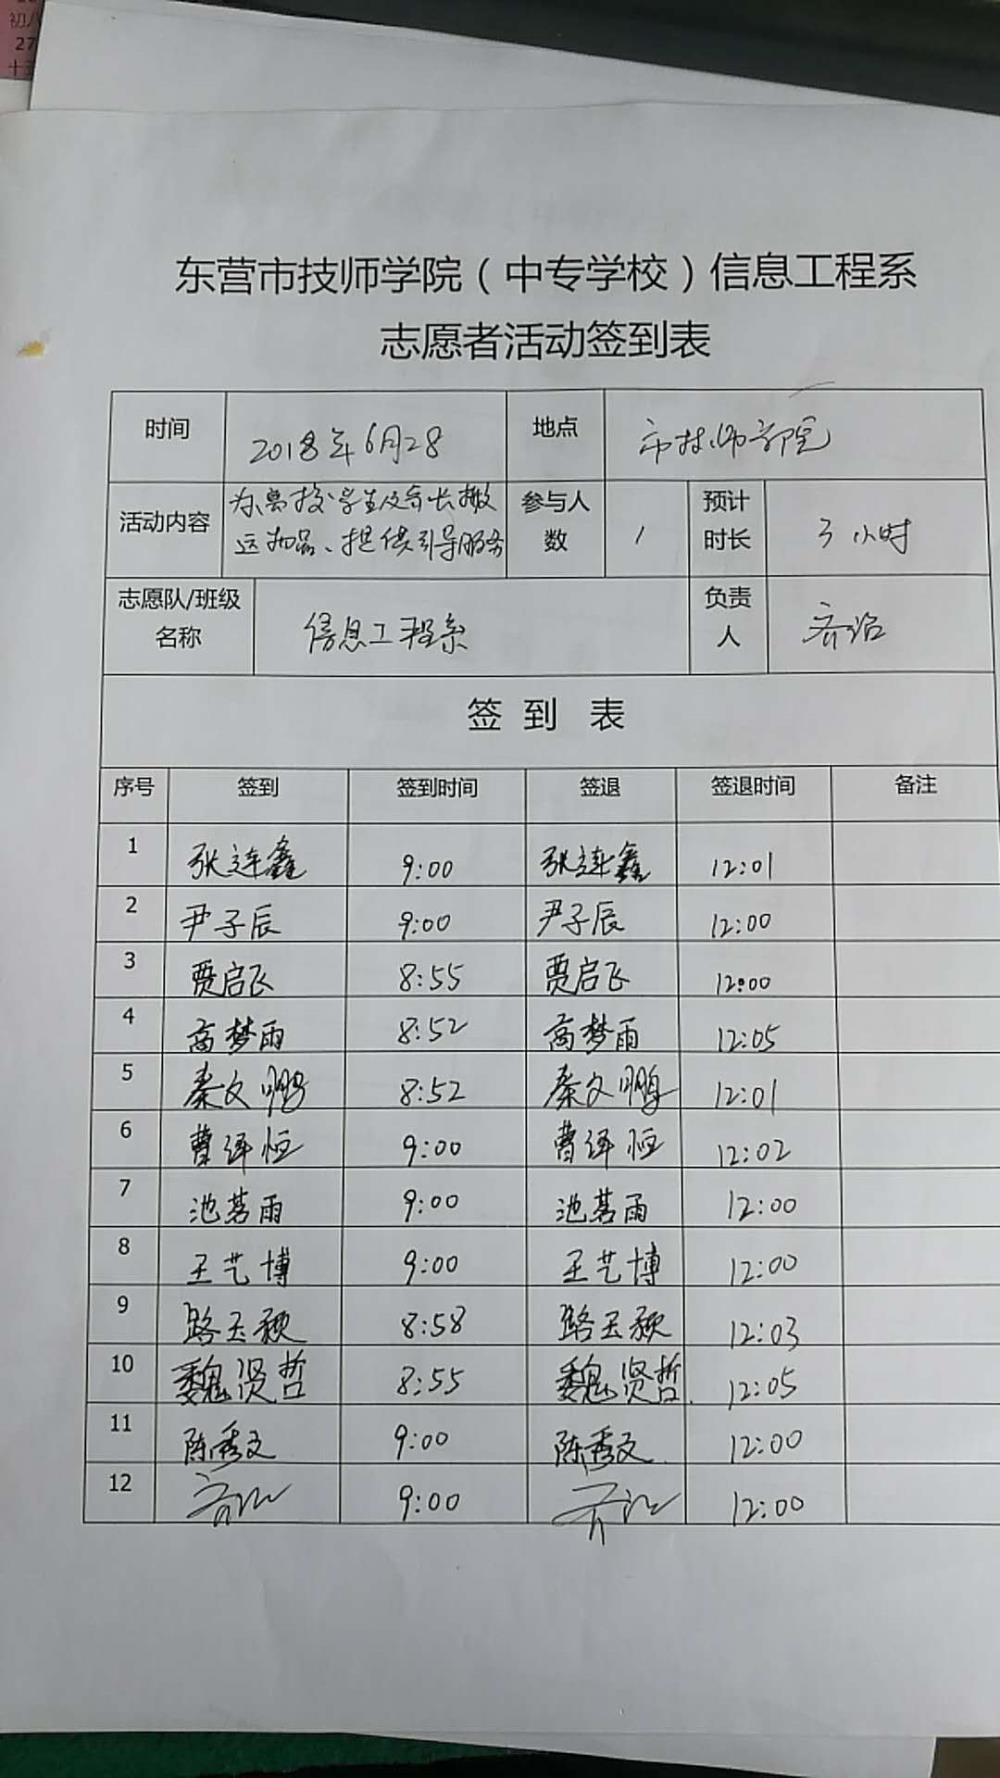 初八
27
东营市技师学院（中专学校）信息工程系
志愿者活动签到表
时间 2018年6月28 地点 市技师学院
活动内容 为离校学生及家长搬运物品、提供引导服务 参与人数 1 预计时长 3小时
志愿队/班级名称 信息工程系 负责人 齐治
签 到 表
序号 签到 签到时间 签退 签退时间 备注
1 张连鑫 9:00 张连鑫 12:01
2 尹子辰 9:00 尹子辰 12:00
3 贾启飞 8:55 贾启飞 12:00
4 高梦雨 8:52 高梦雨 12:05
5 秦文鹏 8:52 秦文鹏 12:01
6 曹译恒 9:00 曹译恒 12:02
7 池茗雨 9:00 池茗雨 12:00
8 王艺博 9:00 王艺博 12:00
9 路玉颖 8:58 路玉颖 12:03
10 魏贤哲 8:55 魏贤哲 12:05
11 陈秀文 9:00 陈秀文 12:00
12 齐治 9:00 齐治 12:00